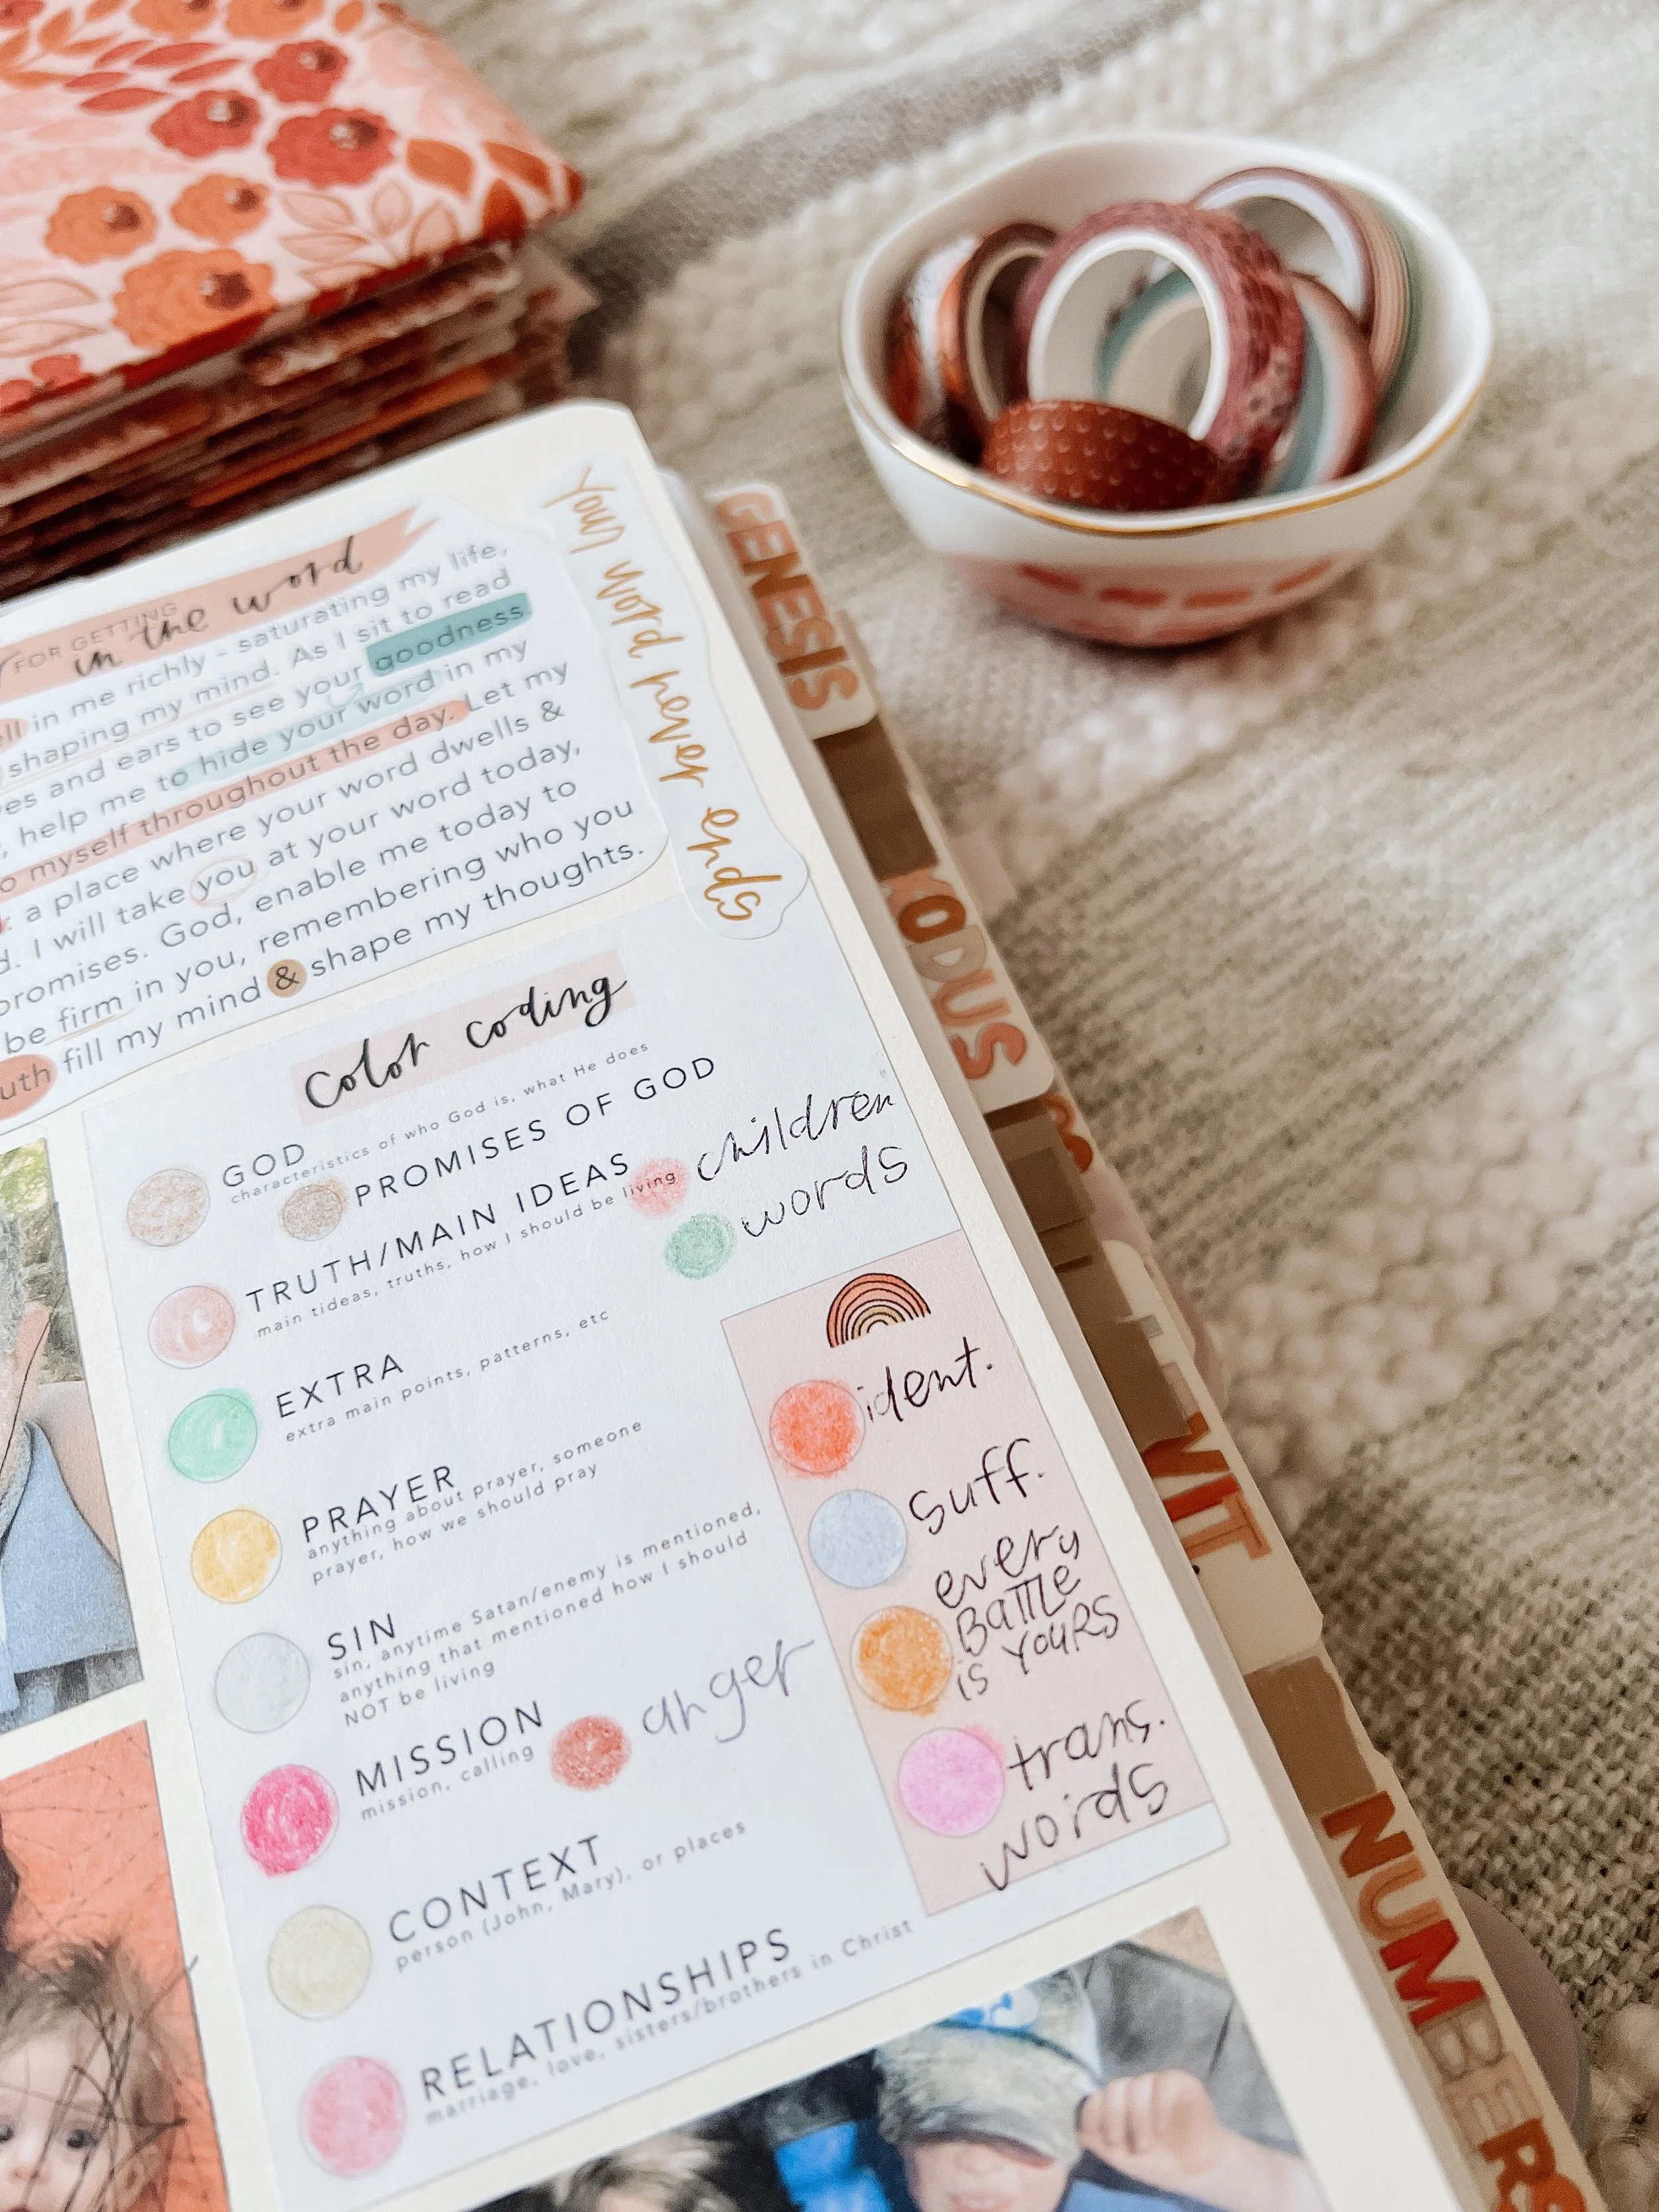 FOR GETTING
in the word
in me richly - saturating my life,
shaping my mind. As I sit to read
and ears to see your goodness.
help me to hide your word in my
myself throughout the day. Let my
a place where your word dwells &
I will take you at your word today,
promises. God, enable me today to
be firm in you, remembering who you
fill my mind & shape my thoughts.
your word never ends
color coding
GOD
characteristics of who God is, what He does
PROMISES OF GOD
TRUTH/MAIN IDEAS
main tideas, truths, how I should be living
children
words
EXTRA
extra main points, patterns, etc
PRAYER
anything about prayer, someone
prayer, how we should pray
SIN
sin, anytime Satan/enemy is mentioned,
anything that mentioned how I should
NOT be living
MISSION
mission, calling
anger
CONTEXT
person (John, Mary), or places
RELATIONSHIPS
marriage, love, sisters/brothers in Christ
ident.
suff.
every
BATTLE
is YOURS
trans.
words
GENESIS
XODUS
VIT.
NUMBERS